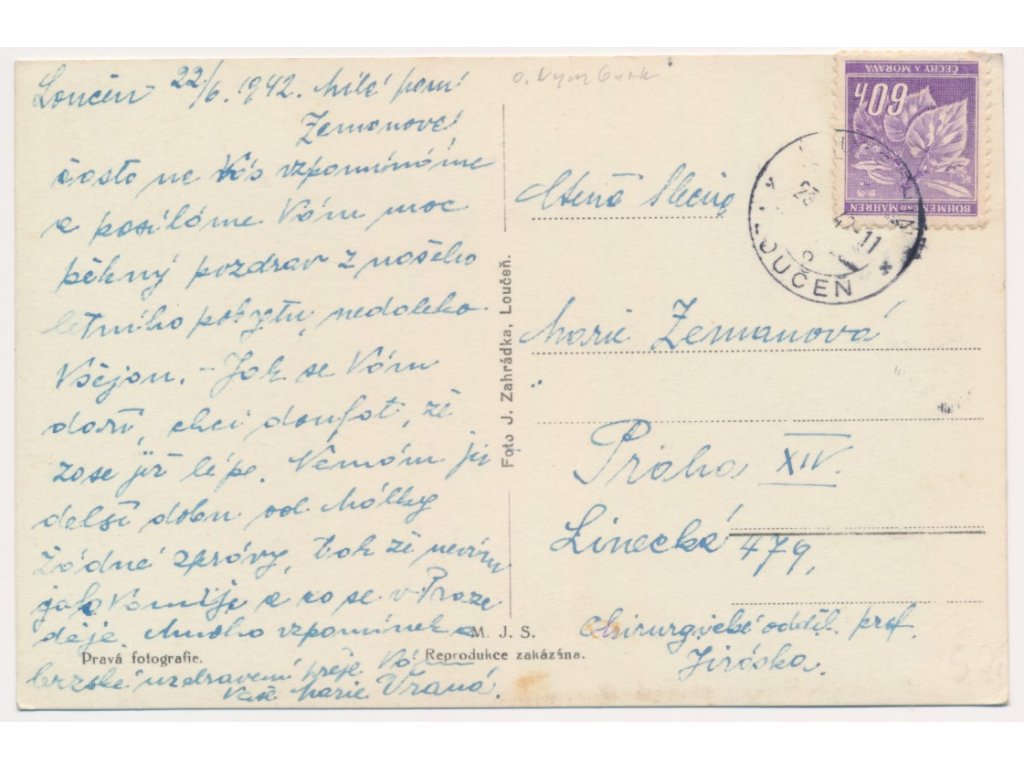 Loučeň 22/6. 1942. Milá paní
Zemanová
často na Vás vzpomínáme
a posíláme Vám moc
pěkný pozdrav z našeho
letního pobytu, nedaleko
Vočjan. – Jak se Vám
daří, chci doufat, že
zase již lépe. Nemám již
delší dobu od Málky
žádné zprávy, tak že nevím
jak Vám je a co se v Praze
děje. Mnoho vzpomínek a
brzské uzdravení přeje Vám
Vaše Marie Vraná.
Pravá fotografie.
M. J. S.
Reprodukce zakázána.
Foto J. Zahrádka, Loučeň.
o. Nymburk
ČECHY A MORAVA
60h
BÖHMEN UND MÄHREN
LOUČEŇ
Ctěná Slečna
Marie Zemanová
Praha XIV.
Linecká 479,
chirurgické odděl. prof.
Jiráska.